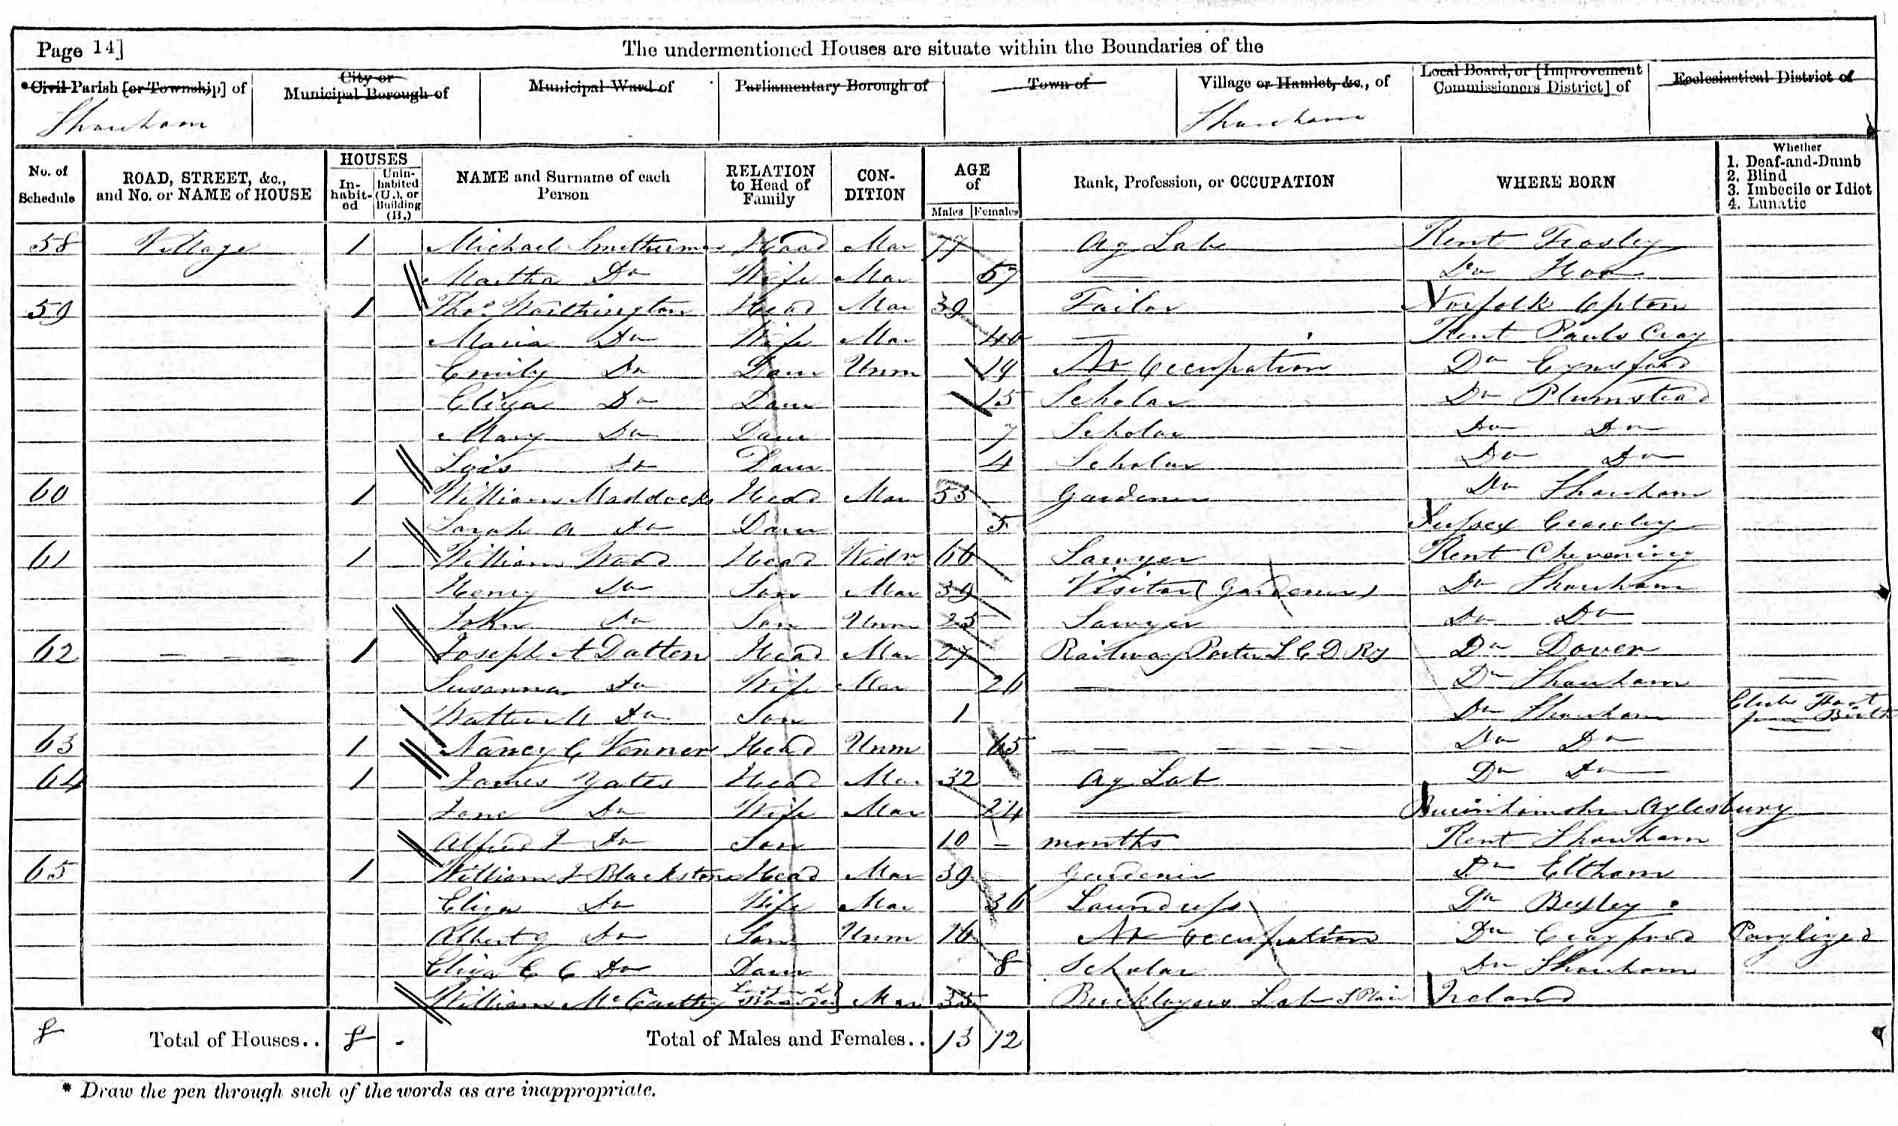 Page 14]
The undermentioned Houses are situate within the Boundaries of the
*Civil Parish [or Township] of
City or Municipal Borough of
Municipal Ward of
Parliamentary Borough of
Town of
Village or Hamlet, &c., of
Local Board, or [Improvement Commissioners District] of
Ecclesiastical District of
Shoreham
Shoreham
No. of Schedule
ROAD, STREET, &c., and No. or NAME of HOUSE
HOUSES
In-habit-ed
Unin-habited (U.), or Building (B.)
NAME and Surname of each Person
RELATION to Head of Family
CON-DITION
AGE of
Males Females
Rank, Profession, or OCCUPATION
WHERE BORN
Whether
1. Deaf-and-Dumb
2. Blind
3. Imbecile or Idiot
4. Lunatic
58 Village 1 Michael Head Mar 77 Ag Lab Kent Trosley
Martha Do Wife Mar 57 — Do Hoo
59 1 Thos Worthington Head Mar 39 Tailor Norfolk Upton
Maria Do Wife Mar 40 — Kent Pauls Cray
Emily Do Daur Unm 19 No Occupation Do Eynsford
Eliza Do Daur 15 Scholar Do Plumstead
Mary Do Daur 7 Scholar Do Do
Do Daur 4 Scholar Do Do
60 1 William Maddocks Head Mar 53 Gardener Do Shoreham
Sarah A Do Daur 5 Sussex Crawley
61 1 William Wood Head Widr 66 Sawyer Kent Chevening
Henry Do Son Mar 39 Visitor (Gardener) Do Shoreham
John Do Son Unm 25 Sawyer Do Do
62 — — — 1 Joseph A Dalton Head Mar 27 Railway Porter L C D Ry Do Dover
Susanna Do Wife Mar 26 — Do Shoreham
Do Son 1 Do Shoreham Club Foot from Birth
63 1 Nancy C Venner Head Unm 65 — — — — — — Do Do
64 1 James Yates Head Mar 32 Ag Lab Do Do
Jane Do Wife Mar 24 — Aylesbury
Alfred J Do Son 10 — months Kent Shoreham
65 1 William J Blackstone Head Mar 39 Gardener Do Eltham
Eliza Do Wife Mar 36 Laundress Do Bexley
Albert G Do Son Unm 16 No Occupation Do Crayford Paralized
Eliza E C Do Daur 8 Scholar Do Shoreham
William McCarthy Boarder Mar 35 Bricklayers Lab Ireland
8 Total of Houses.. 8 - Total of Males and Females.. 13 12
* Draw the pen through such of the words as are inappropriate.